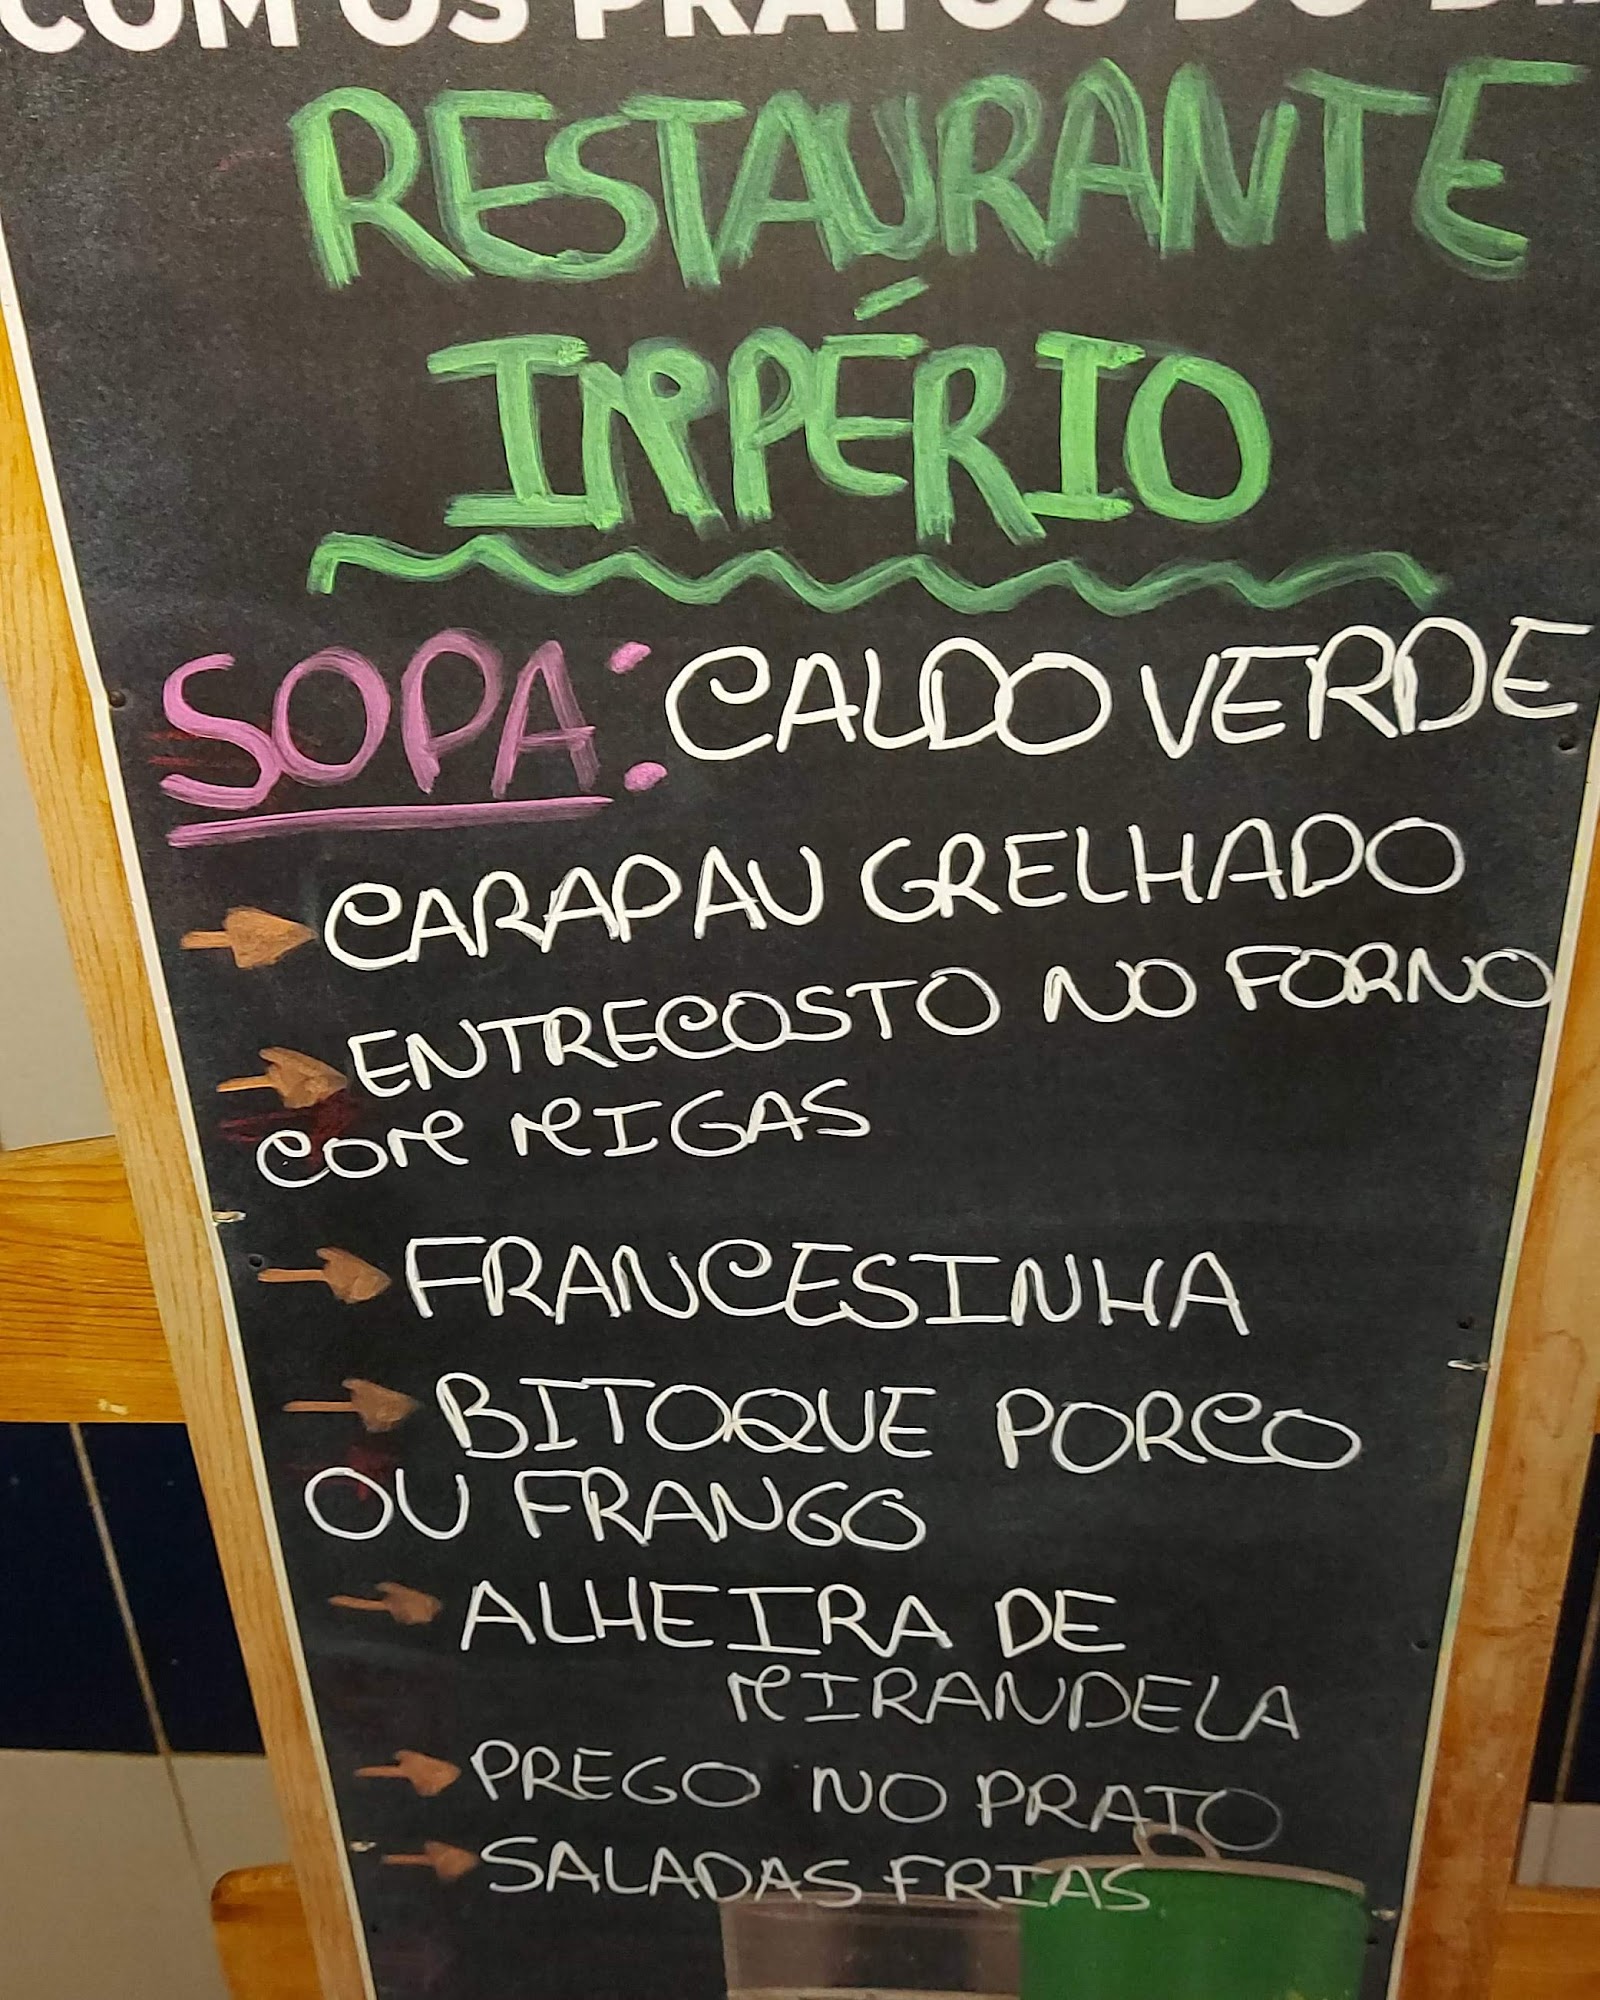 COM OS PRATOS DO DIA
RESTAURANTE
IMPÉRIO
SOPA: CALDO VERDE
CARAPAU GRELHADO
ENTRECOSTO NO FORNO
COM MIGAS
FRANCESINHA
BITOQUE PORCO
OU FRANGO
ALHEIRA DE
MIRANDELA
PREGO NO PRATO
SALADAS FRIAS